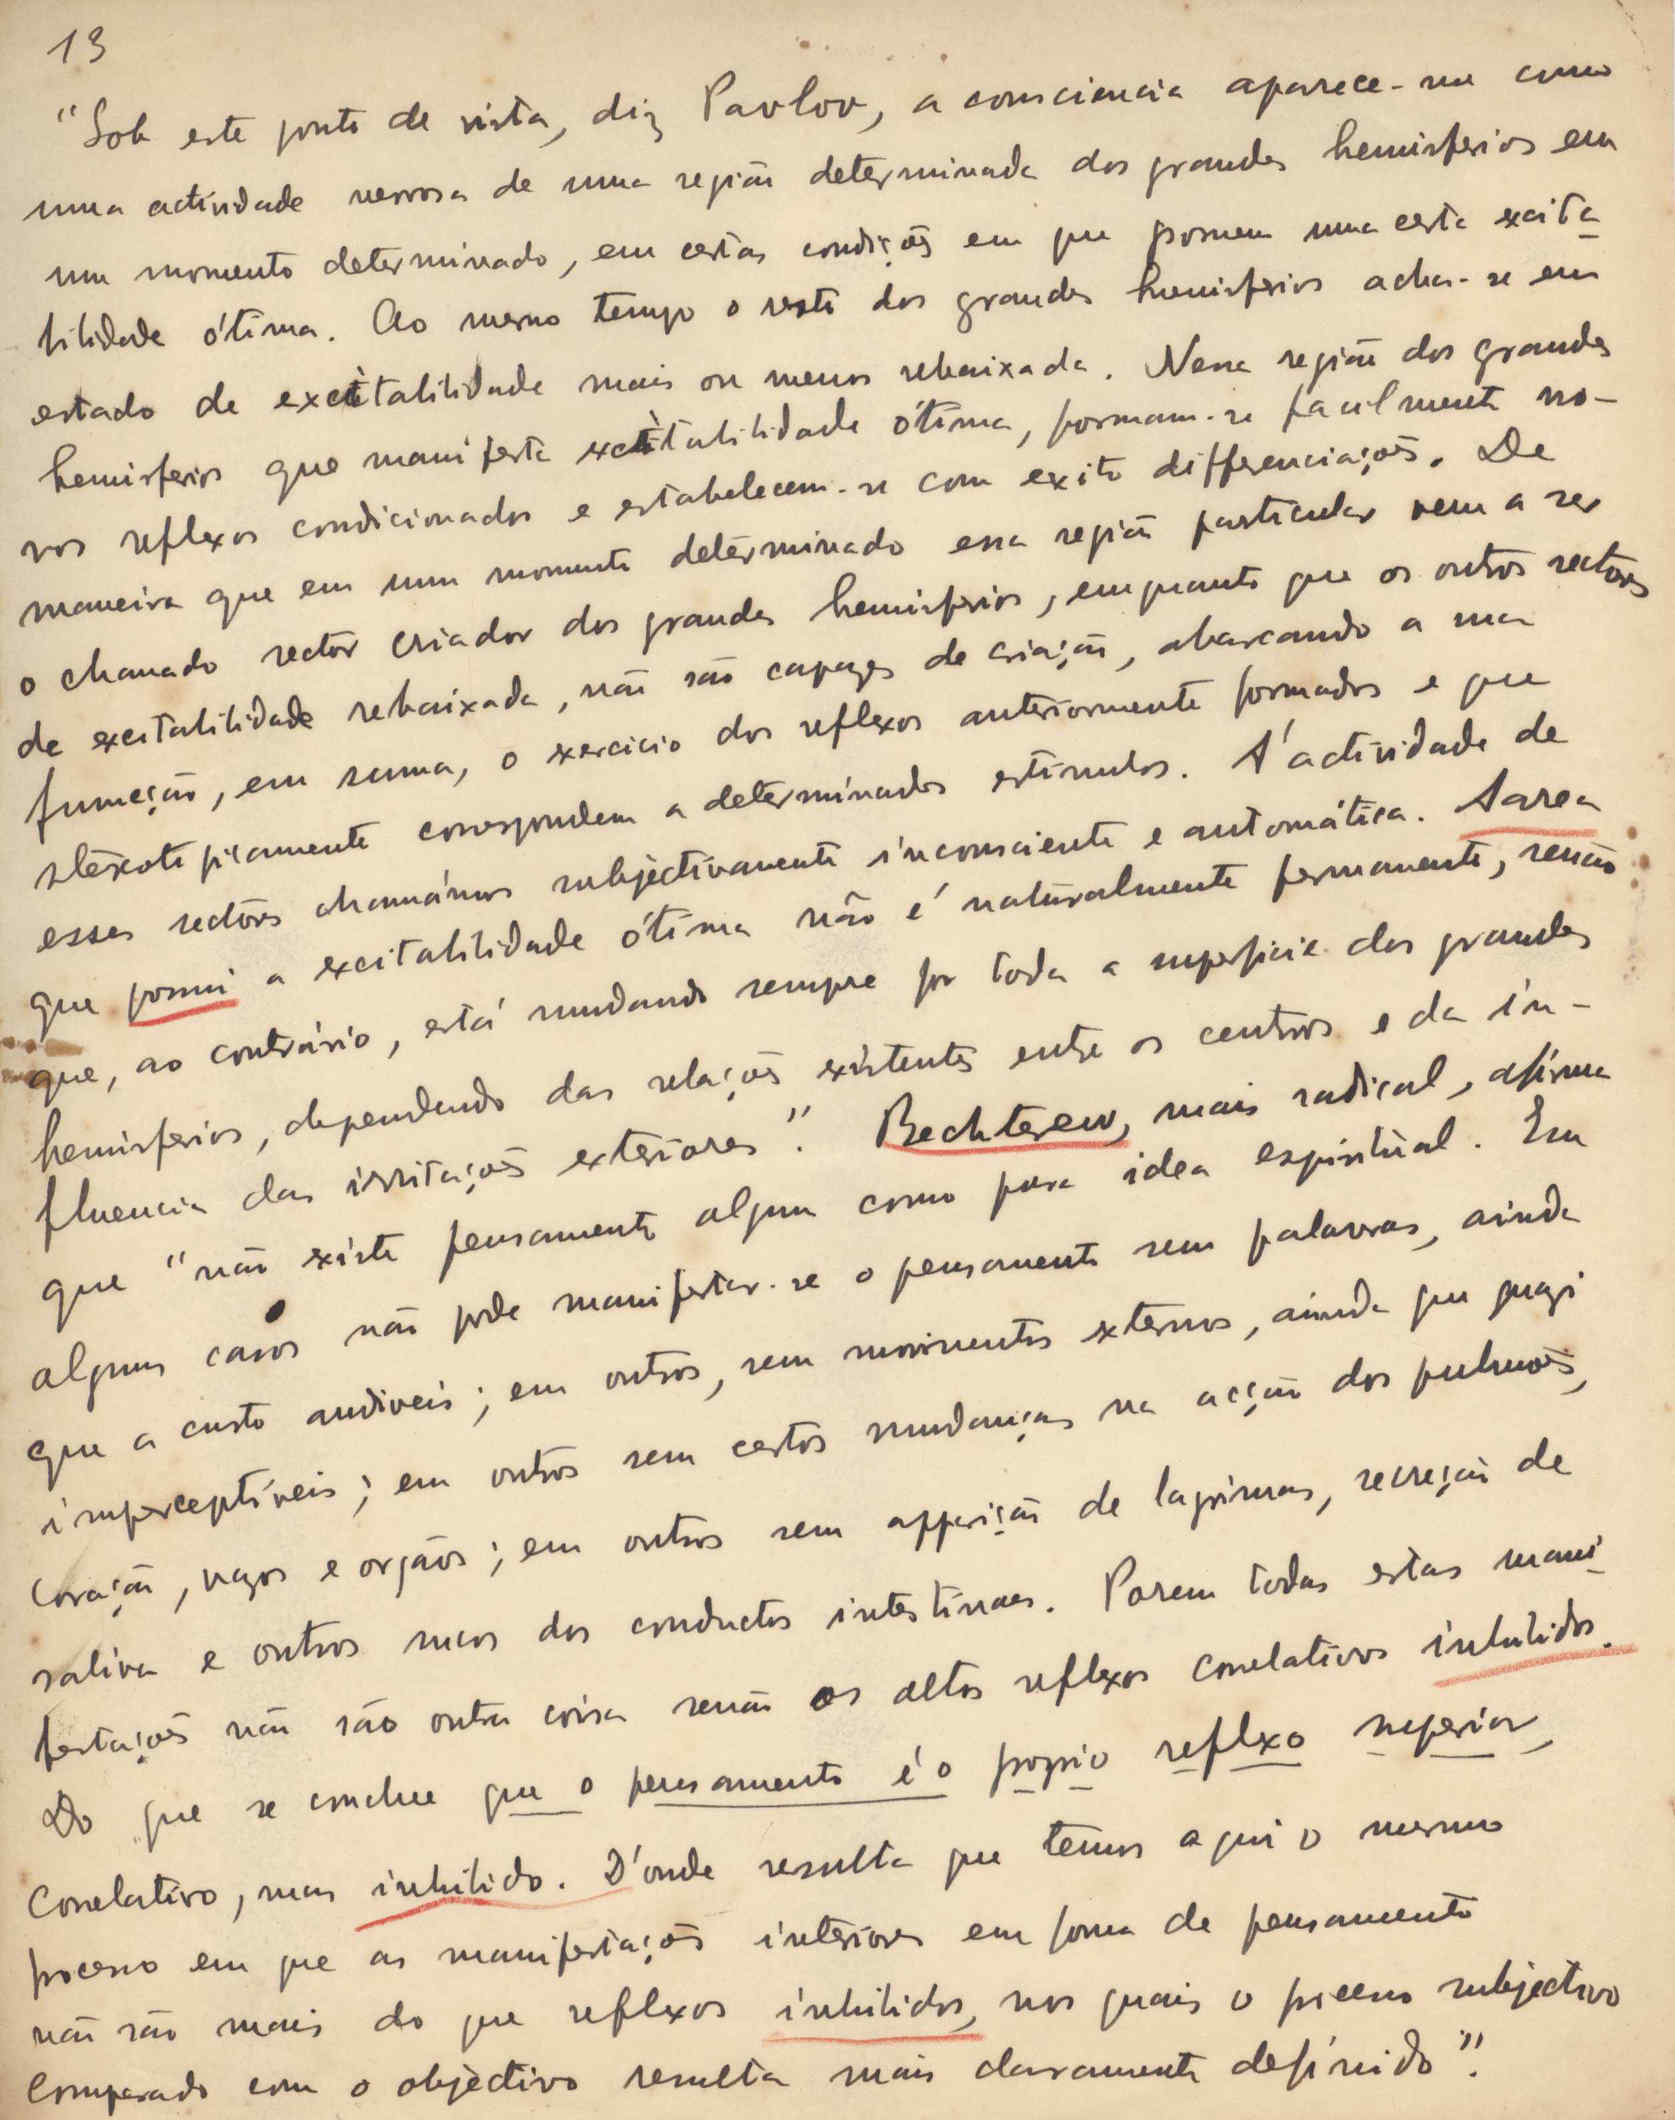 13
"Sob este ponto de vista, diz Pavlov, a consciencia aparece-me como
uma actividade nervosa de uma região determinada dos grandes hemisferios em
um momento determinado, em certas condições em que possuem uma certa excita
bilidade ótima. Ao mesmo tempo o resto dos grandes hemisferios acha-se em
estado de excitabilidade mais ou menos rebaixada. Nessa região dos grandes
hemisferios que manifesta excitabilidade ótima, formam-se facilmente no-
vos reflexos condicionados e estabelecem-se com exito differenciações. De
maneira que em um momento determinado essa região particular vem a ser
o chamado sector criador dos grandes hemisferios, emquanto que os outros sectores
de excitabilidade rebaixada, não são capazes de criação, abarcando a sua
funcção, em suma, o exercicio dos reflexos anteriormente formados e que
stereotipicamente correspondem a determinados estimulos. A' actividade de
esses sectores chamámos subjectivamente inconsciente e automática. A area
que possui a excitabilidade ótima não é naturalmente permanente, senão
que, ao contrário, está mudando sempre por toda a superficie dos grandes
hemisferios, dependendo das relações existentes entre os centros e da in-
fluencia das irritações exteriores". Bechterew, mais radical, afirma
que "não existe pensamento algum como pura idea espiritual. Em
alguns casos não pode manifestar-se o pensamento sem palavras, ainda
que a custo audiveis; em outros, sem movimentos externos, ainda que quazi
imperceptíveis; em outros sem certos mudanças na acção dos pulmões,
coração, vazos e orgãos; em outros sem appariçãо de lagrimas, secreção de
saliva e outros sucos dos conductos intestinaes. Porem todas estas mani
festações não são outra coisa senão os altos reflexos correlativos inhibidos.
Do que se conclue que o pensamento é o proprio reflexo superior,
correlativo, mas inhibido. D'onde resulta que temos aqui o mesmo
processo em que as manifestações interiores em forma de pensamento
não são mais do que reflexos inhibidos, nos quais o processo subjectivo
comparado com o objectivo resulta mais claramente definido".